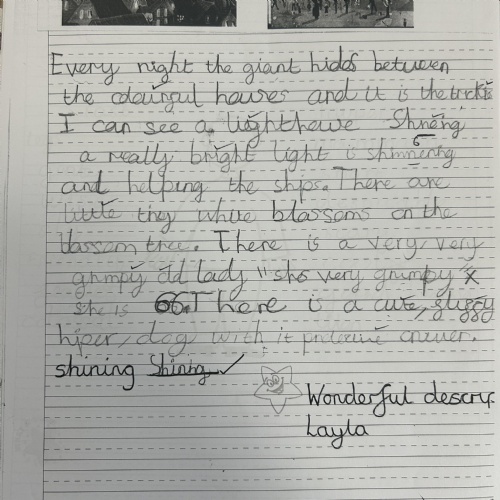 Every night the giant hides between
the colourful houses and it is the
I can see a lighthouse Shineng
a really bright light is shinnering
6
and helping the ships. There are
little they white blossoms on the
blossom tree. There is a very very
grumpy old lady "she very grumpy x
she is 66. There is a cute,
hiper, dog with it
shining Shining ✓
Wonderful descrip
Layla